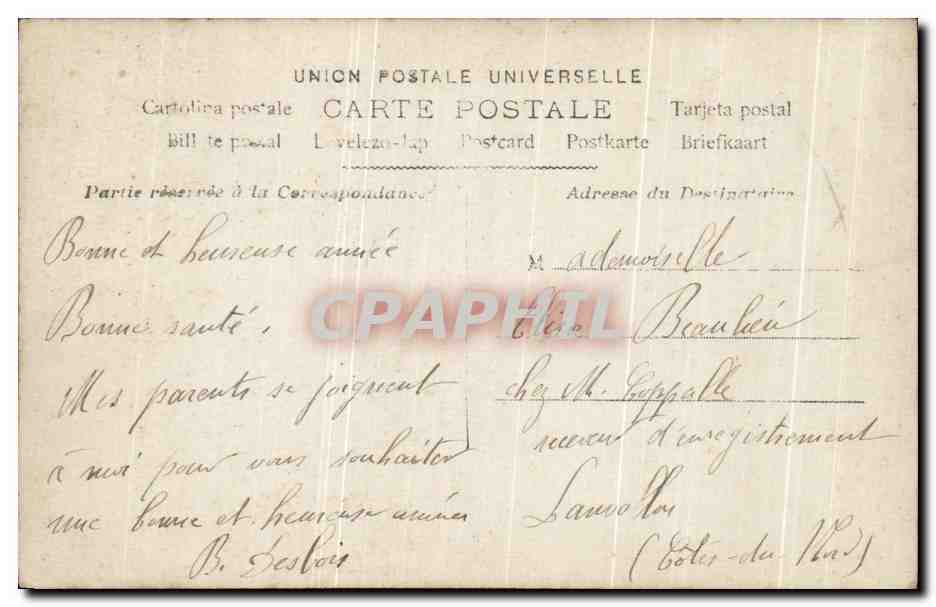 UNION POSTALE UNIVERSELLE
Cartolina postale CARTE POSTALE Tarjeta postal
Bill te postal Levelezo-lap Postcard Postkarte Briefkaart
Partie réservée à la Correspondance
Adresse du Destinataire
Bonne et heureuse année
Bonne santé.
Mes parents se joignent
à moi pour vous souhaiter
une bonne et heureuse année
B. Desbois
Mademoiselle
Elisa Beaulieu
chez M. Coppalle
receveur d'enregistrement
Lanvollon
(Côtes-du-Nord)
CPAPHIL